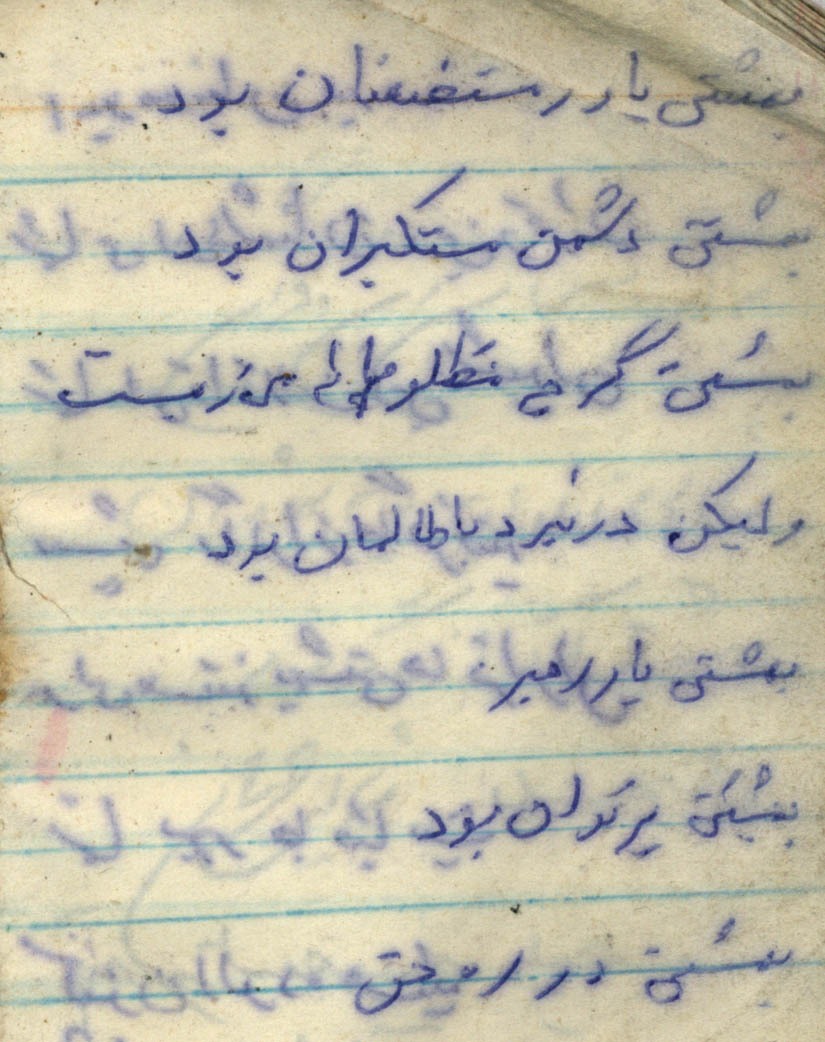 بهشتی یاور مستضعفان بود
بهشتی دشمن مستکبران بود
بهشتی گرچه مظلومانه می زیست
ولیکن در نبرد با ظالمان بود
بهشتی یار رهبر
بهشتی پرتوان بود
بهشتی در ره حق